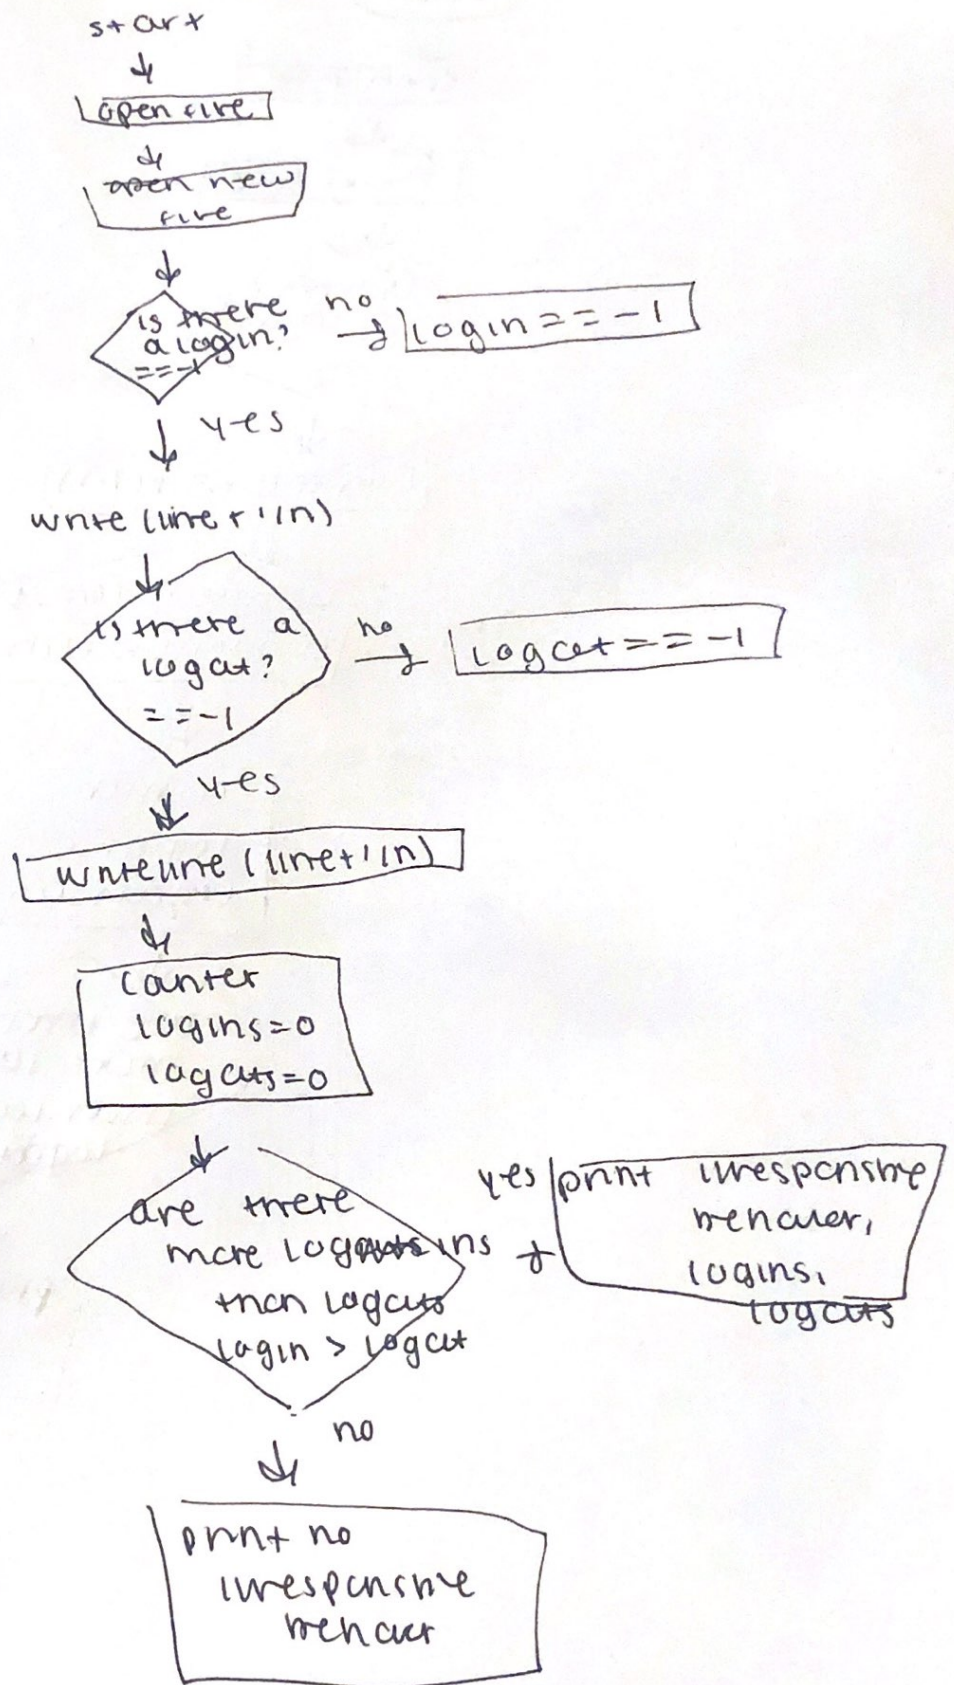 start
open file
open new
file
is there
a login?
==-1
no
login == -1
yes
write (line + '\n)
is there a
logout?
==-1
no
logout == -1
yes
writeline (line + '\n)
counter
logins=0
logouts=0
are there
more logins
than logouts
login > logout
yes
print irresponsible
behavior,
logins,
logouts
no
print no
irresponsible
behavior